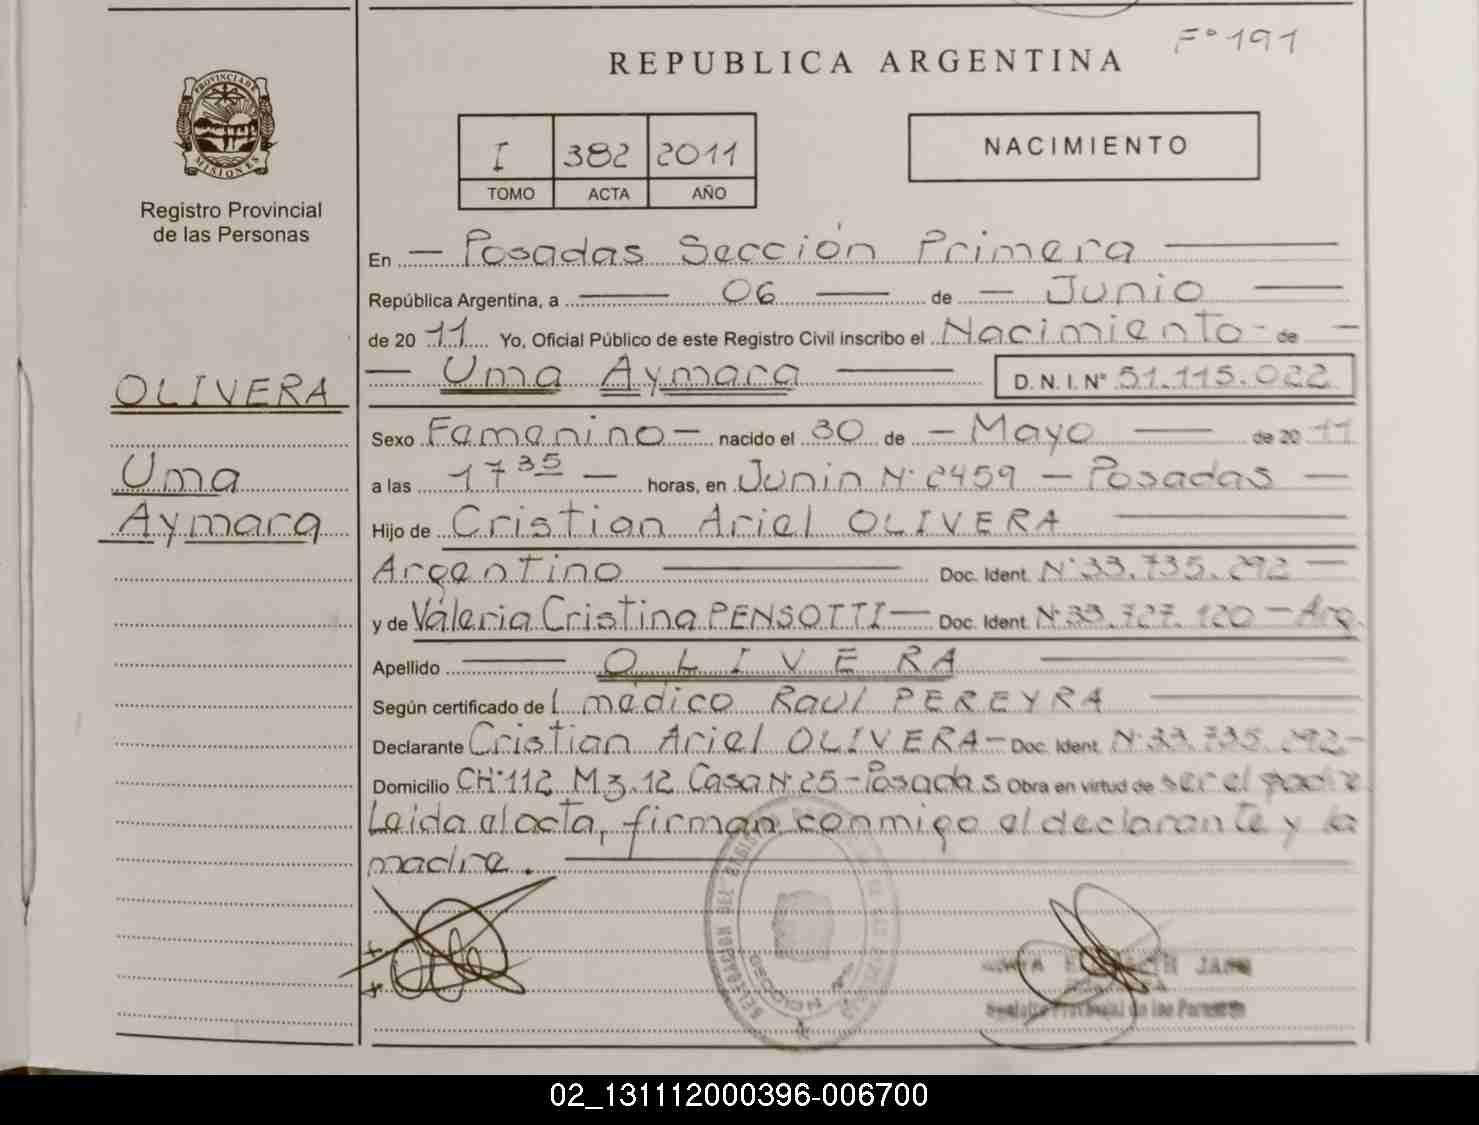 F° 191
REPUBLICA ARGENTINA
PROVINCIA DE
MISIONES
Registro Provincial
de las Personas
I 382 2011
TOMO ACTA AÑO
NACIMIENTO
En — Posadas Sección Primera —
República Argentina, a — 06 — de — Junio —
de 20 11 Yo, Oficial Público de este Registro Civil inscribo el Nacimiento - de —
— Uma Aymara — D. N. I. N° 51.115.022
OLIVERA
Uma
Aymara
Sexo Femenino — nacido el 30 de — Mayo — de 20 11
a las 17 35 — horas, en Junin N° 2459 — Posadas —
Hijo de Cristian Ariel OLIVERA —
Argentino — Doc. Ident. N° 33.735.292 —
y de Valeria Cristina PENSOTTI — Doc. Ident. N° 33.727.120 — Arg.
Apellido — OLIVERA —
Según certificado de l médico Raul PEREYRA —
Declarante Cristian Ariel OLIVERA — Doc. Ident. N° 33.735.292.-
Domicilio CH° 112 Mz. 12 Casa N° 25 - Posadas Obra en virtud de ser el padre
Leida el acta, firman conmigo el declarante y la
madre. —
DELEGACION DEL REGISTRO
JARA
Registro Provincial de las Personas
02_131112000396-006700